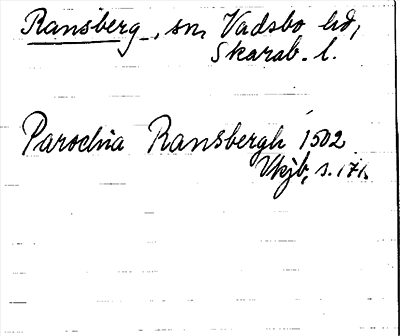 Ransberg, sn, Vadsbo hd,
Skarab. l.
Parochia Ransbergh 1502
Vkjb, s. 171.